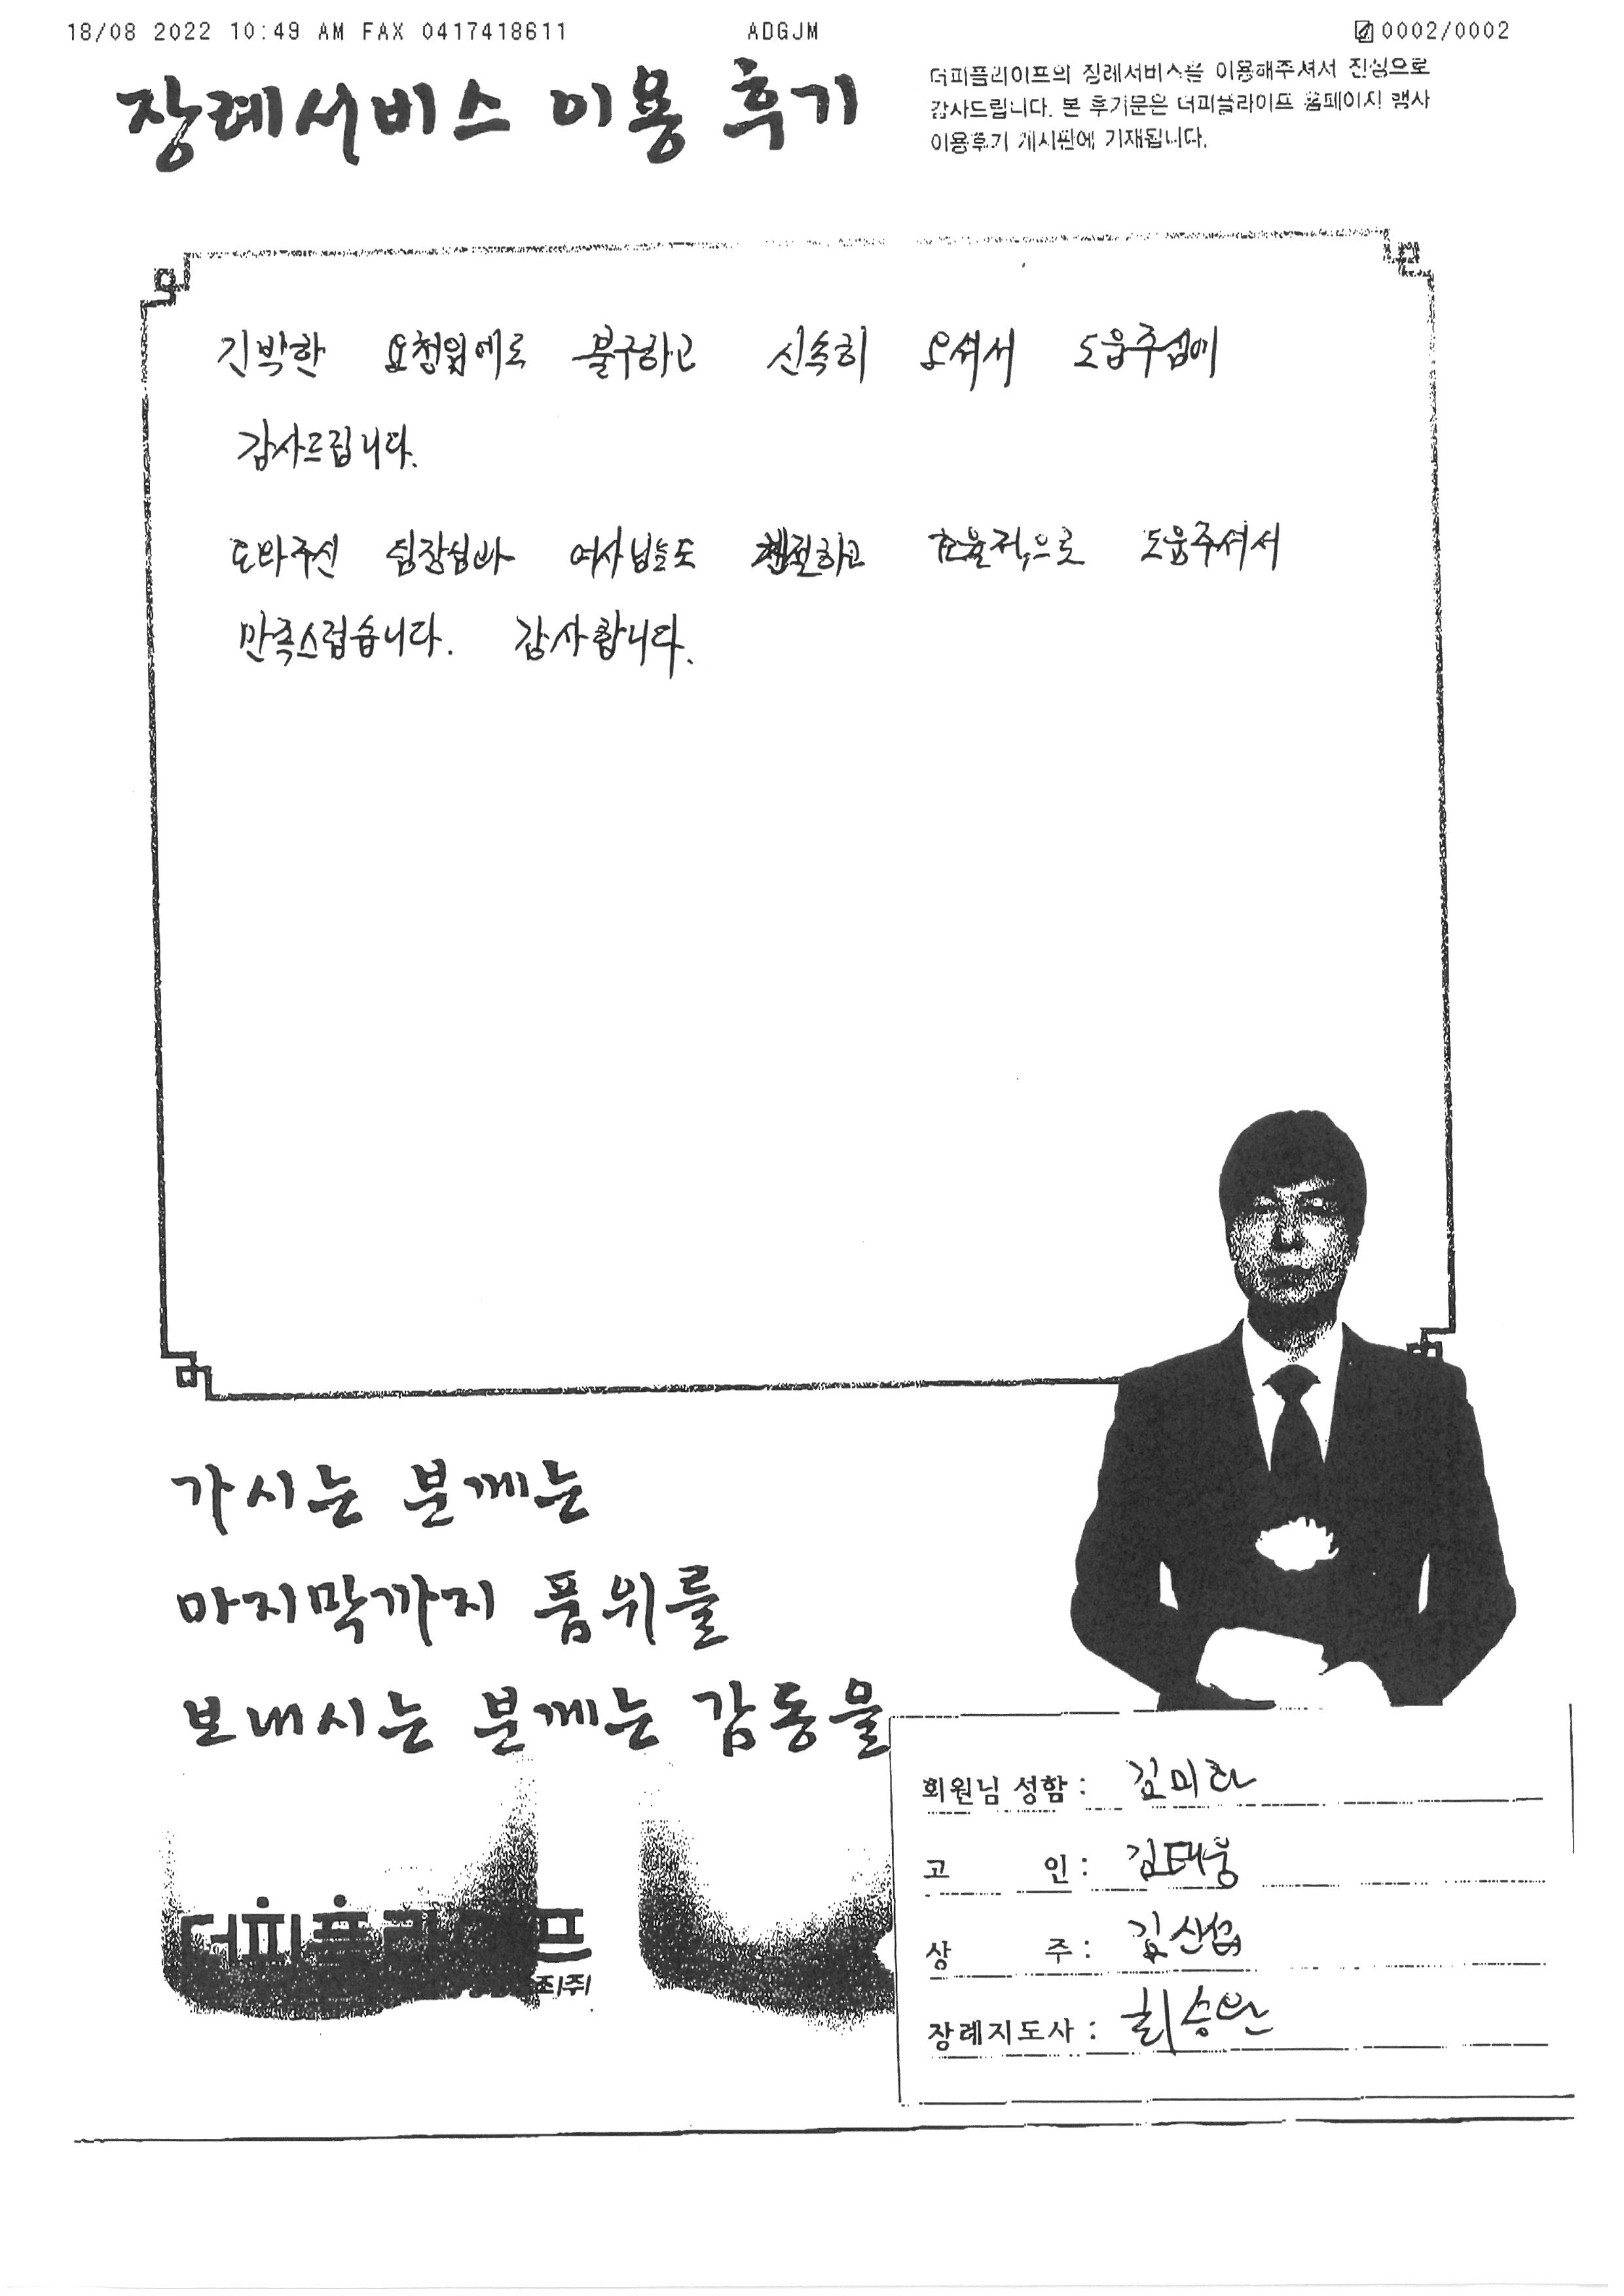 18/08 2022 10:49 AM FAX 0417418611 ADGJM 0002/0002
장례서비스 이용 후기
더피플라이프의 장례서비스를 이용해주셔서 진심으로
감사드립니다. 본 후기문은 더피플라이프 홈페이지 행사
이용후기 게시판에 기재됩니다.
긴박한 요청임에도 불구하고 신속히 오셔서 도움주심에
감사드립니다.
도와주신 팀장님과 여사님들도 친절하고 효율적으로 도움주셔서
만족스럽습니다. 감사합니다.
가시는 분께는
마지막까지 품위를
보내시는 분께는 감동을
더피플라이프
회원님 성함 : 김미라
고 인 : 김태웅
상 주 : 김산섭
장례지도사 :